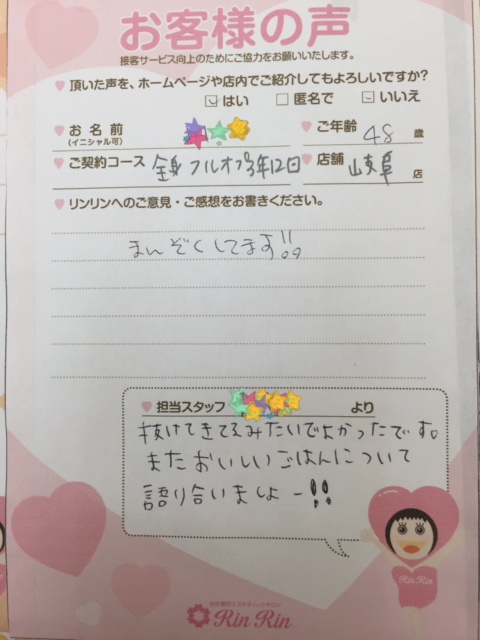 お客様の声
接客サービス向上のためにご協力をお願いいたします。
頂いた声を、ホームページや店内でご紹介してもよろしいですか?
はい 匿名で いいえ
お名前 ご年齢 48 歳
(イニシャル可)
ご契約コース 全身フルオプ3年12回 店舗 岐阜 店
リンリンへのご意見・ご感想をお書きください。
まんぞくしてます!!
担当スタッフ より
抜けてきてるみたいでよかったです。
またおいしいごはんについて
語り合いましょー!!
Rin Rin
女性専用エステティックサロン
Rin Rin